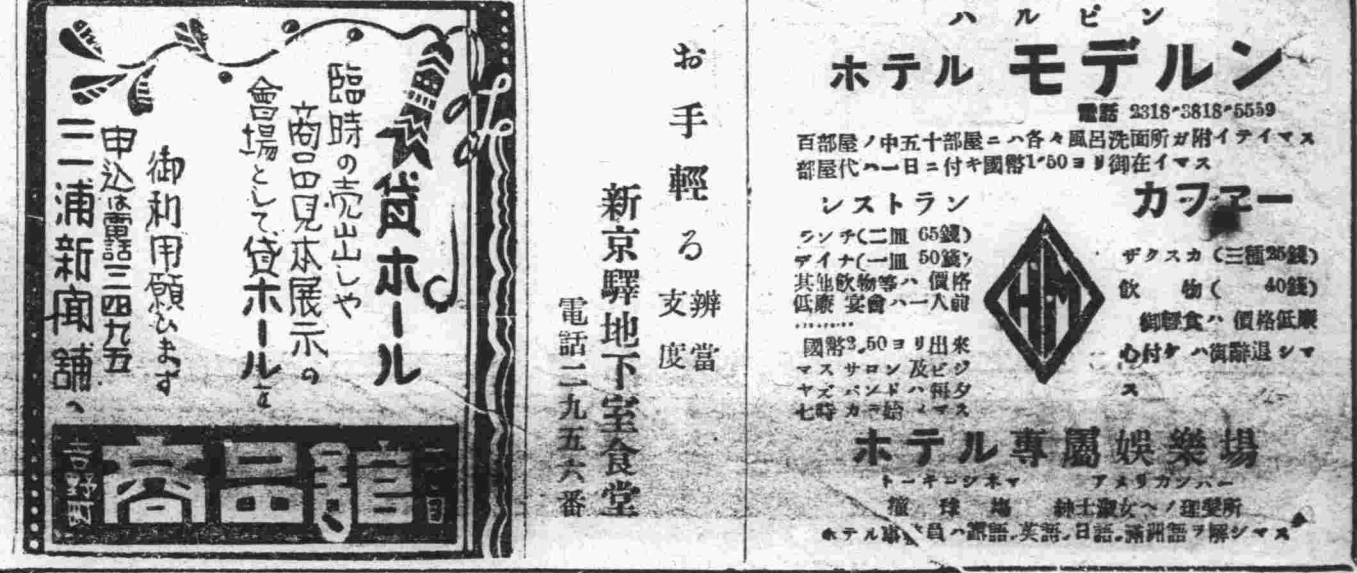 ハルピン
ホテル モデルン
電話 2318・3818・5559
百部屋ノ中五十部屋ニハ各々風呂洗面所ガ附イテイマス
部屋代ハ一日ニ付キ國幣1・50ヨリ御在イマス
レストラン
ランチ(二皿 65錢)
デイナ(一皿 50錢)
其他飲物等ハ 價格
低廉 宴會ハ一人前
國幣3.50ヨリ出來
マス サロン 及ビジ
ヤズ バンドハ 每夕
七時 カラ始 イマス
カフヱー
ザクスカ(三種25錢)
飲 物( 40錢)
御輕食ハ 價格低廉
心付ケハ御辭退シマ
ス
HM
ホテル專屬娯樂場
トーキーシネマ アメリカンバー
撞球場 紳士淑女ヘノ理髪所
ホテル 員ハ露語.英語.日語.滿洲語ヲ解シマス
お手輕る
辨當
支度
新京驛地下室食堂
電話二九五六番
貸ホール
臨時の売出しや
商品見本展示の
會場として、貸ホールを
御利用願ひます
申込は電話三四九五
三浦新聞舗へ
吉野町 商品館 二丁目